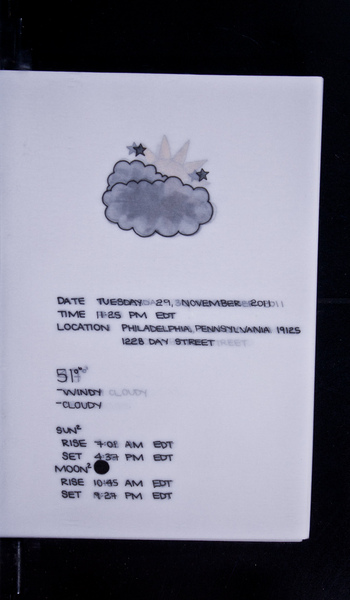 DATE TUESDAY 29, NOVEMBER 2011
TIME 11:25 PM EDT
LOCATION PHILADELPHIA, PENNSYLVANIA 19125
1228 DAY STREET
51°
-WINDY
-CLOUDY
SUN²
RISE AM EDT
SET 4:37 PM EDT
MOON²
RISE 10:45 AM EDT
SET 9:27 PM EDT